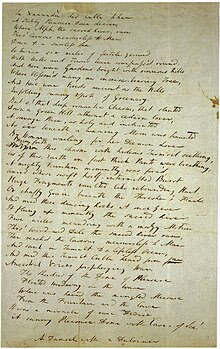 In Xannadù did Cubla Khan
A stately Pleasure-Dome decree;
Where Alph, the sacred River, ran
Thro' Caverns measureless to Man
Down to a sunless Sea.
So twice six miles of fertile ground
With Walls and Towers were compass'd round:
And here were Gardens bright with sinuous Rills
Where blossom'd many an incense-bearing Tree,
And here were Forests ancient as the Hills
Enfolding sunny Spots of Greenery.
But o! that deep romantic Chasm, that slanted
Down a green Hill athwart a cedarn Cover,
A savage Place, as holy and inchanted
As e'er beneath a waning Moon was haunted
By Woman wailing for her Dæmon Lover:
From forth this Chasm with hideous Turmoil seething,
As if this Earth in fast thick Pants were breathing,
A mighty Fountain momently was forc'd,
Amid whose swift half-intermitted Burst
Huge Fragments vaulted like rebounding Hail,
Or chaffy Grain beneath the Thresher's Flail.
And mid these dancing Rocks at once & ever
It flung up momently the sacred River.
Five miles meandering with a mazy Motion
Thro' Wood and Dale the sacred River ran,
Then reach'd the Caverns measureless to Man
And sank in Tumult to a lifeless Ocean;
And mid this Tumult Cubla heard from far
Ancestral Voices prophesying War.
The Shadow of the Dome of Pleasure
Floated midway on the Wave
Where was heard the mingled Measure
From the Fountain and the Cave.
It was a miracle of rare Device,
A sunny Pleasure-Dome with Caves of Ice!
A Damsel with a Dulcimer